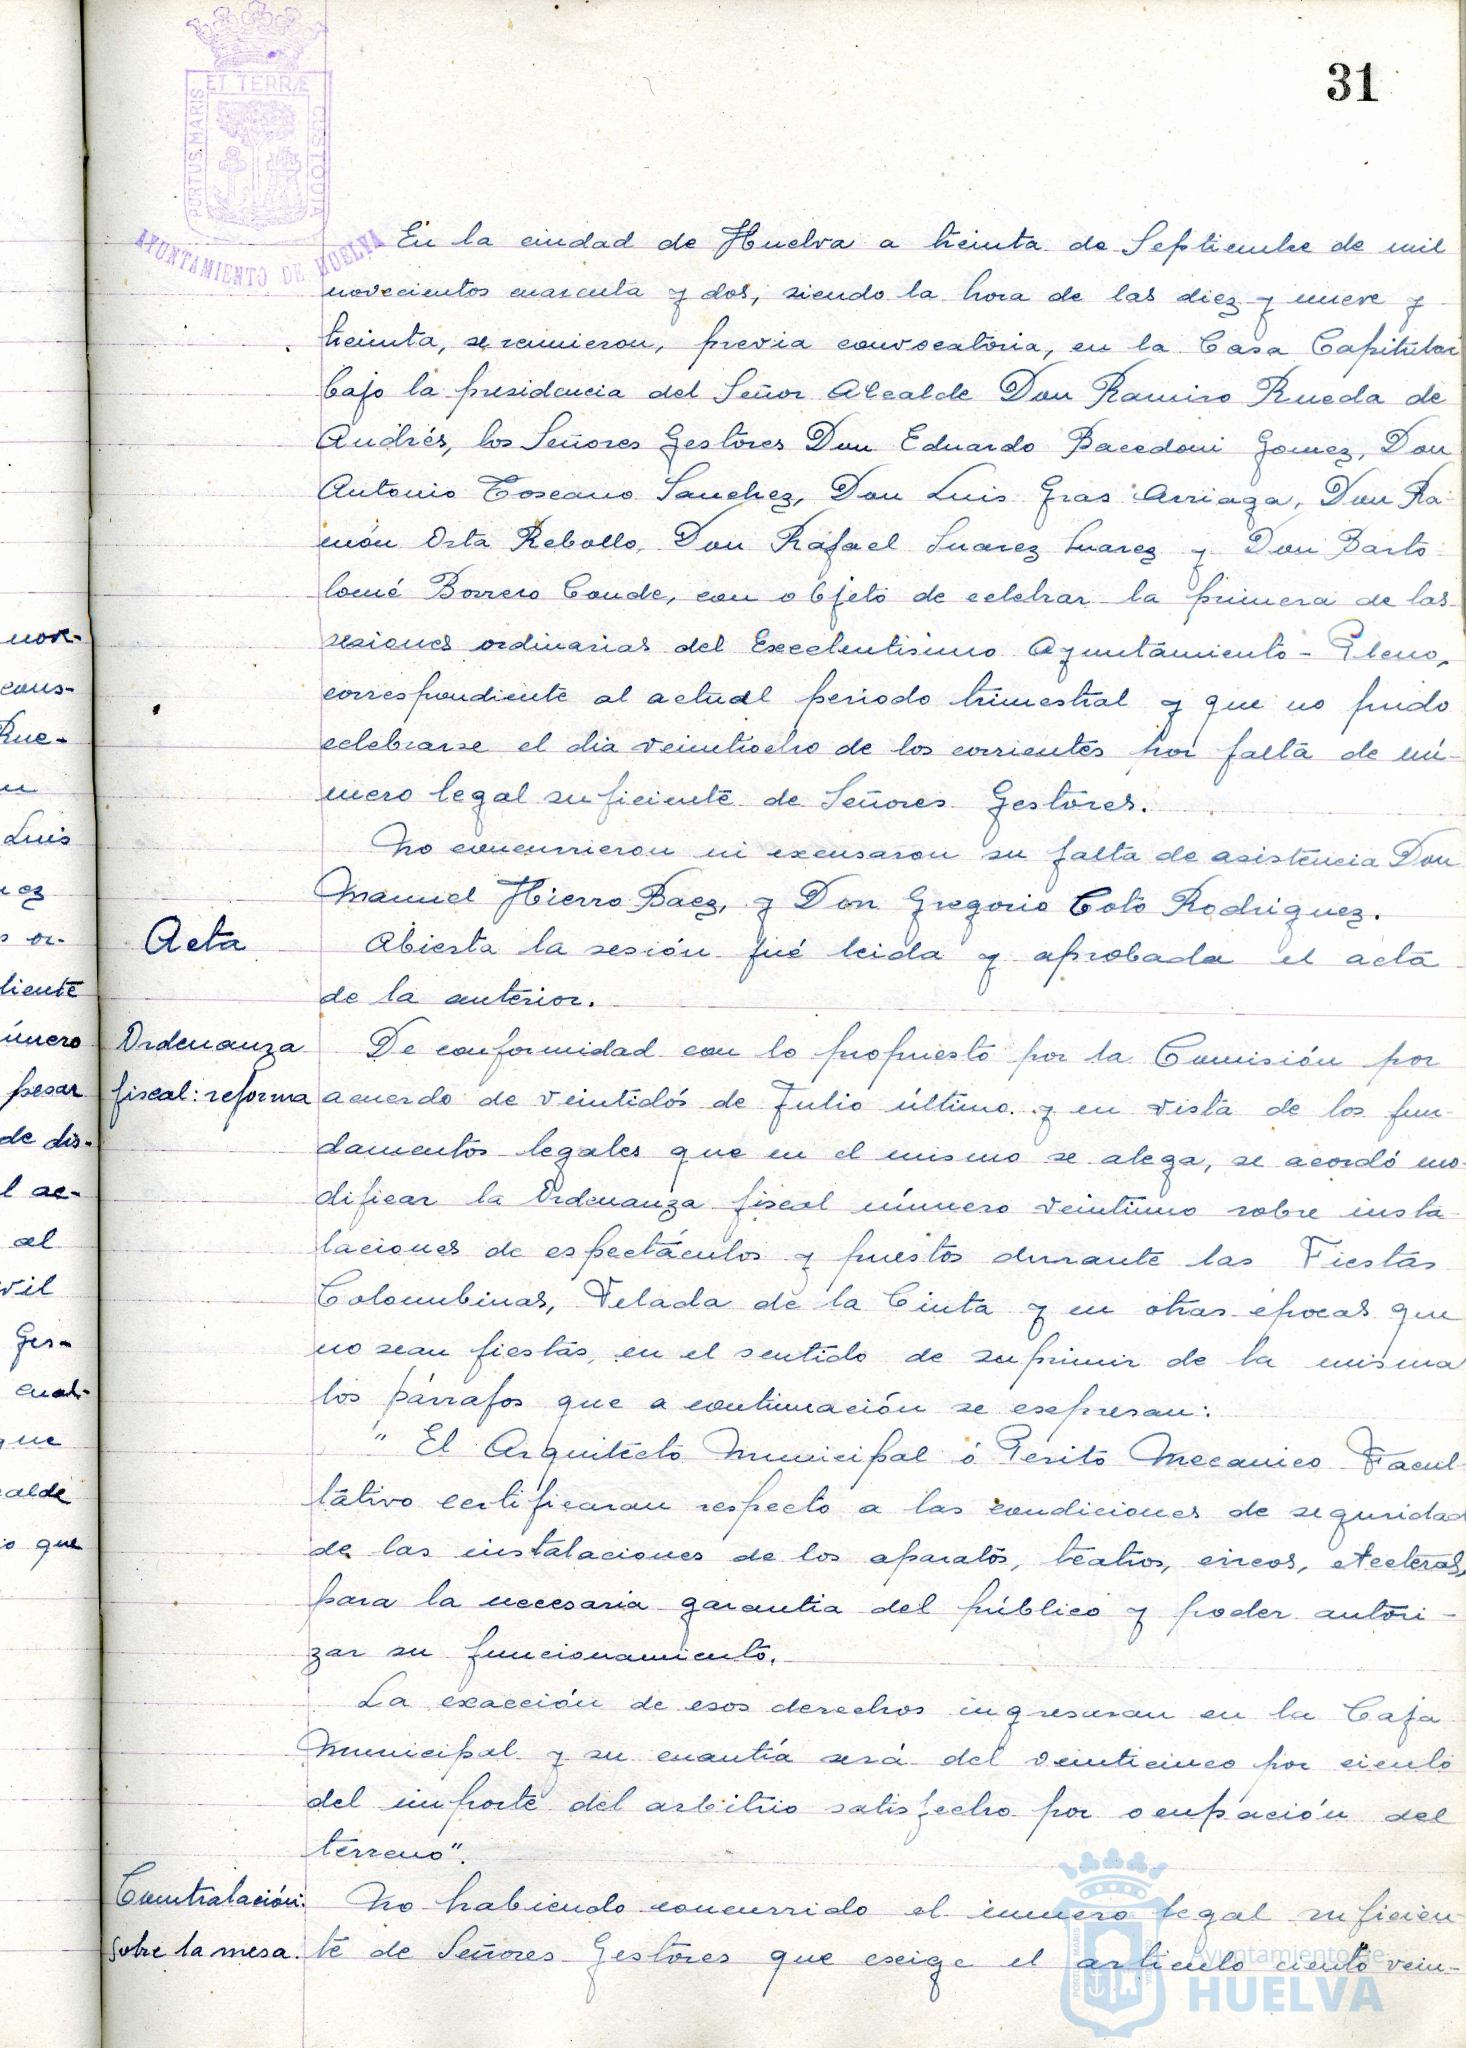 31
ET TERRÆ
PORTUS MARIS
CUSTODIA
AYUNTAMIENTO DE HUELVA
En la ciudad de Huelva a treinta de Septiembre de mil
novecientos cuarenta y dos, siendo la hora de las diez y nueve y
treinta, se reunieron, previa convocatoria, en la Casa Capitular
bajo la presidencia del Señor Alcalde Don Ramiro Rueda de
Andrés, los Señores Gestores Don Eduardo Bacedoni Gomez, Don
Antonio Toscano Sanchez, Don Luis Gras Arriaga, Don Ra-
món Orta Rebollo, Don Rafael Suarez Suarez y Don Barto
lomé Borrero Conde, con objeto de celebrar la primera de las
sesiones ordinarias del Excelentisimo Ayuntamiento-Pleno,
correspondiente al actual periodo trimestral y que no pudo
celebrarse el dia veintiocho de los corrientes por falta de nú-
mero legal suficiente de Señores Gestores.
No concurrieron ni excusaron su falta de asistencia Don
Manuel Hierro Baez, y Don Gregorio Coto Rodriguez.
Acta
Abierta la sesión fué leida y aprobada el acta
de la anterior.
Ordenanza
fiscal: reforma
De conformidad con lo propuesto por la Comisión por
acuerdo de veintidós de Julio último y en vista de los fun-
damentos legales que en el mismo se alega, se acordó mo-
dificar la Ordenanza fiscal número veintiuno sobre insta-
laciones de espectáculos y puestos durante las Fiestas
Colombinas, Velada de la Cinta y en otras épocas que
no sean fiestas, en el sentido de suprimir de la misma
los párrafos que a continuación se expresan:
" El Arquitecto Municipal ó Perito Mecanico Facul-
tativo certificaran respecto a las condiciones de seguridad
de las instalaciones de los aparatos, teatros, circos, etceteras,
para la necesaria garantia del público y poder autori-
zar su funcionamiento.
La exacción de esos derechos ingresaran en la Caja
Municipal y su cuantía será del veinticinco por ciento
del importe del arbitrio satisfecho por ocupación del
terreno".
Contratación:
sobre la mesa.
No habiendo concurrido el numero legal suficien-
te de Señores Gestores que exige el articulo ciento vein-
nove-
cons-
Rue-
Luis
ez
s or-
diente
úmero
pesar
de dis-
l ac-
al
vil
Ges-
cual-
que
calde
io que
Ayuntamiento de
HUELVA